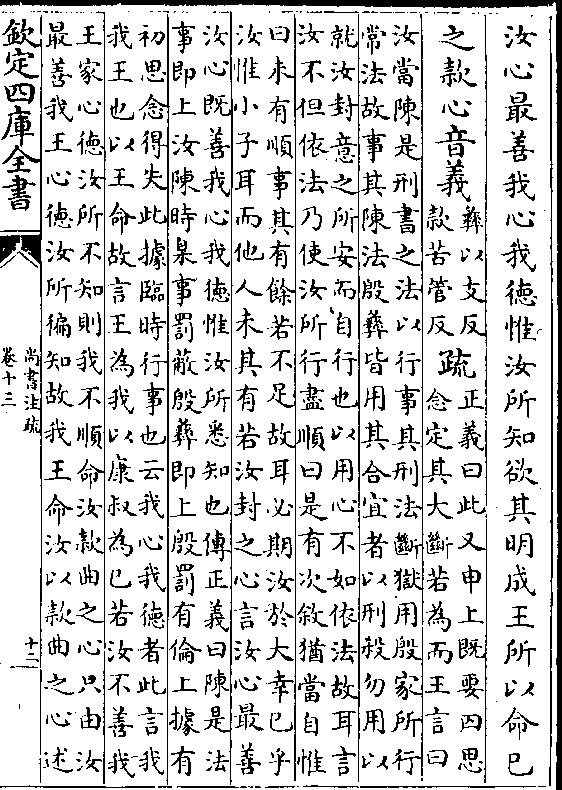 汝心最善我心我德惟汝所知欲其明成王所以命已
之款心音義
彝以支反
款苦管反
疏
正義曰此又申上既要囚思
念定其大斷若為而王言曰
汝當陳是刑書之法以行事其刑法斷獄用殷家所行
常法故事其陳法殷彝皆用其合宜者以刑殺勿用以
就汝封意之所安而自行也以用心不如依法故耳言
汝不但依法乃使汝所行盡順曰是有次敘猶當自惟
曰未有順事其有餘若不足故耳必期汝於大幸已乎
汝惟小子耳而他人未其有若汝封之心言汝心最善
汝心既善我心我德惟汝所悉知也傳正義曰陳是法
事即上汝陳時臬事罰蔽殷彝即上殷罰有倫上據有
初思念得失此據臨時行事也云我心我德者此言我
我王也以王命故言王為我以康叔為已若汝不善我
王家心德汝所不知則我不順命汝款曲之心只由汝
最善我王心德汝所徧知故我王命汝以款曲之心述
欽定四庫全書
尚書注疏
卷十三
十二